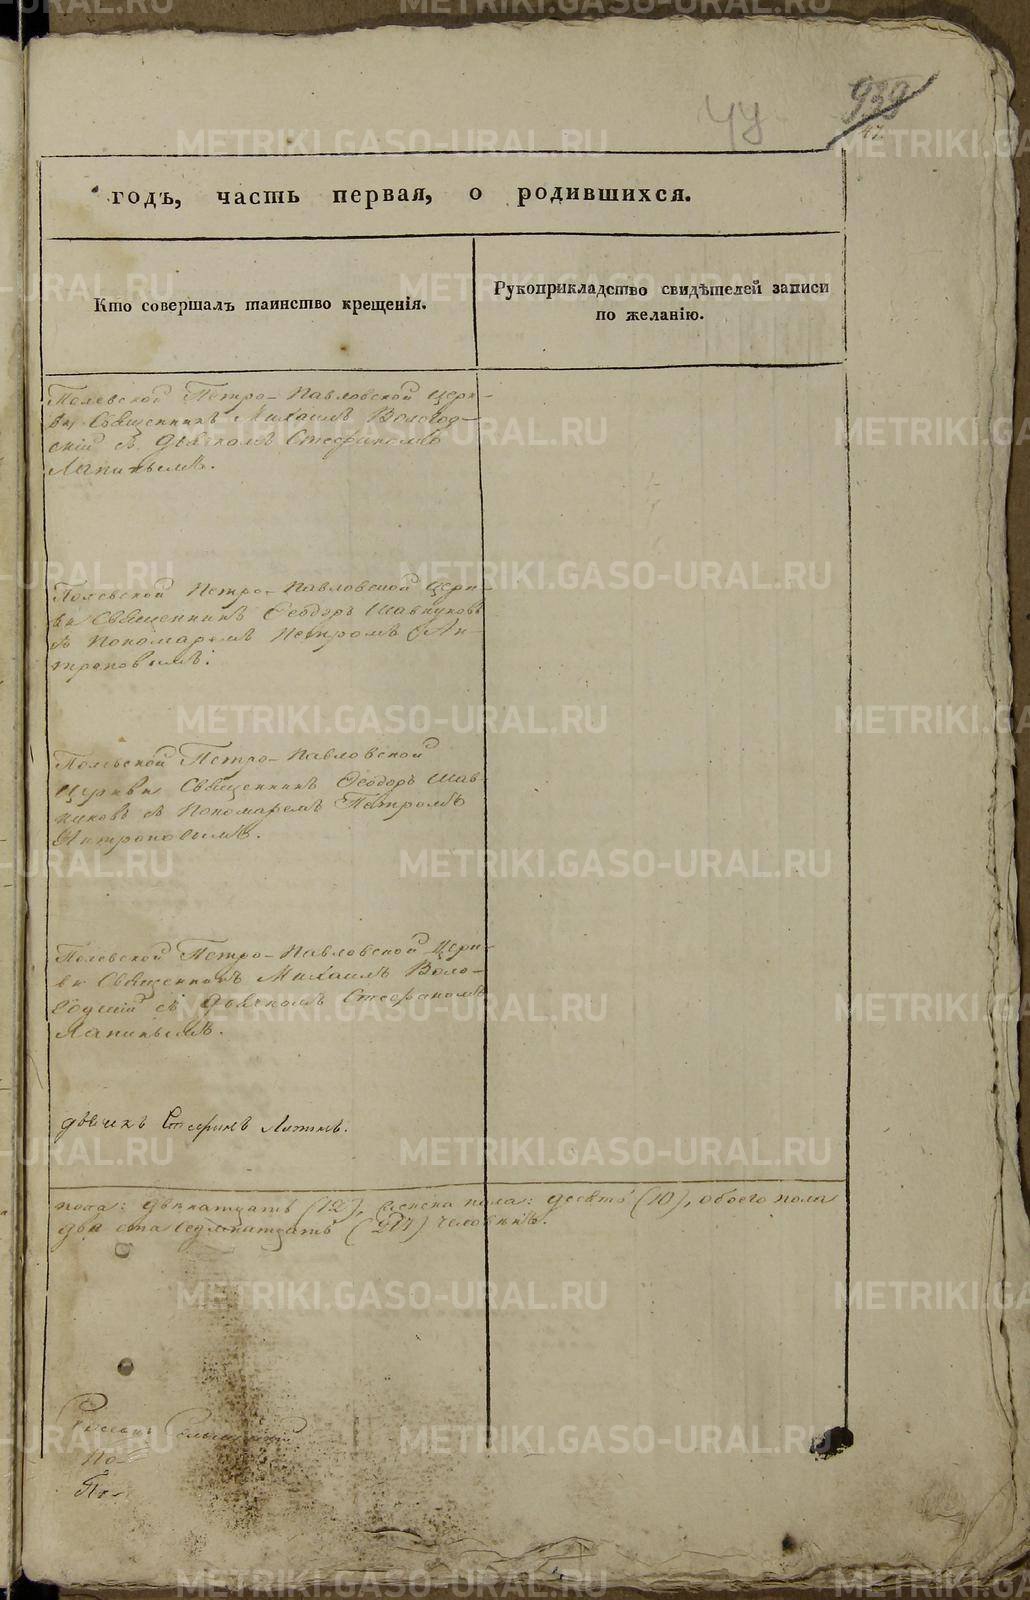 939
47
годъ, часть первая, о родившихся.
Кто совершалъ таинство крещенія.
Рукоприкладство свидѣтелей записи
по желанію.
Полевской Петро-Павловской Церк-
ви Священникъ Михаилъ Вологод-
скій съ Дьячкомъ Стефаномъ
Лапинымъ.
Полевской Петро-Павловской Церк-
ви Священникъ Ѳеодоръ Шавкуновъ
съ Пономаремъ Петромъ Ан-
троповымъ.
Полевской Петро-Павловской
Церкви Священникъ Ѳеодоръ Шав-
куновъ съ Пономаремъ Петромъ
Антроповымъ.
Полевской Петро-Павловской Церк-
ви Священникъ Михаилъ Воло-
годскій съ Дьячкомъ Стефаномъ
Лапинымъ.
дьячекъ Стефанъ
пола: двенатцать (12), женска пола: десять (10), обоего пола
две ста семнатцать (217) человекъ.
METRIKI.GASO-URAL.RU